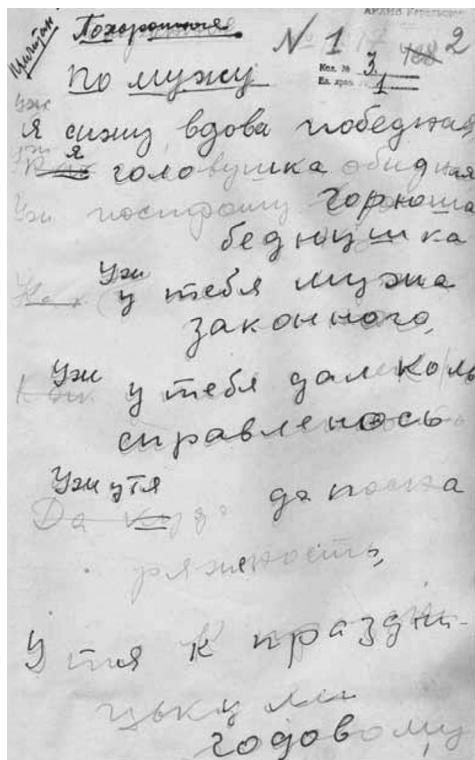 Похоронная
N 1 2
Кол. № 3
Ед. хран. 1
По мужу
Я сижу, вдова победная,
уж я головушка обидная
Уж поспрошу горюша
беднушка
Уж у тебя мужа
законного,
Уж у тебя дале коль
справленось
Уж у тя да посна
ряжность,
У тя к праздни-
цьку ли
годовому